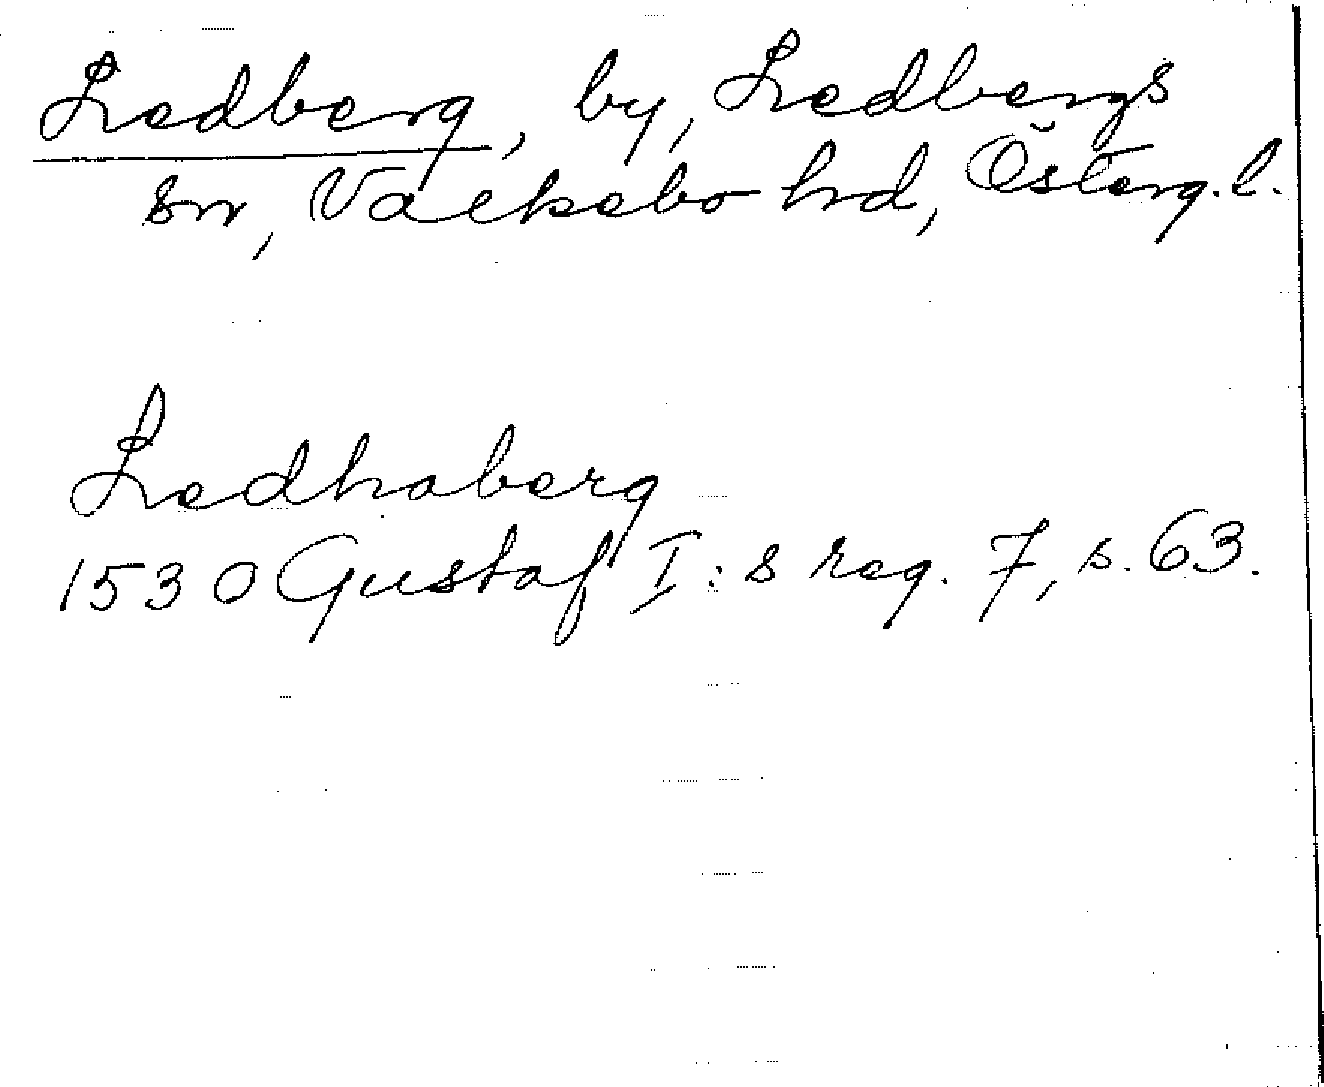 Ledberg, by, Ledbergs
sn, Valkebo hrd, Österg. l.
Ledhaberg
1530 Gustaf I:s reg. 7, s. 63.